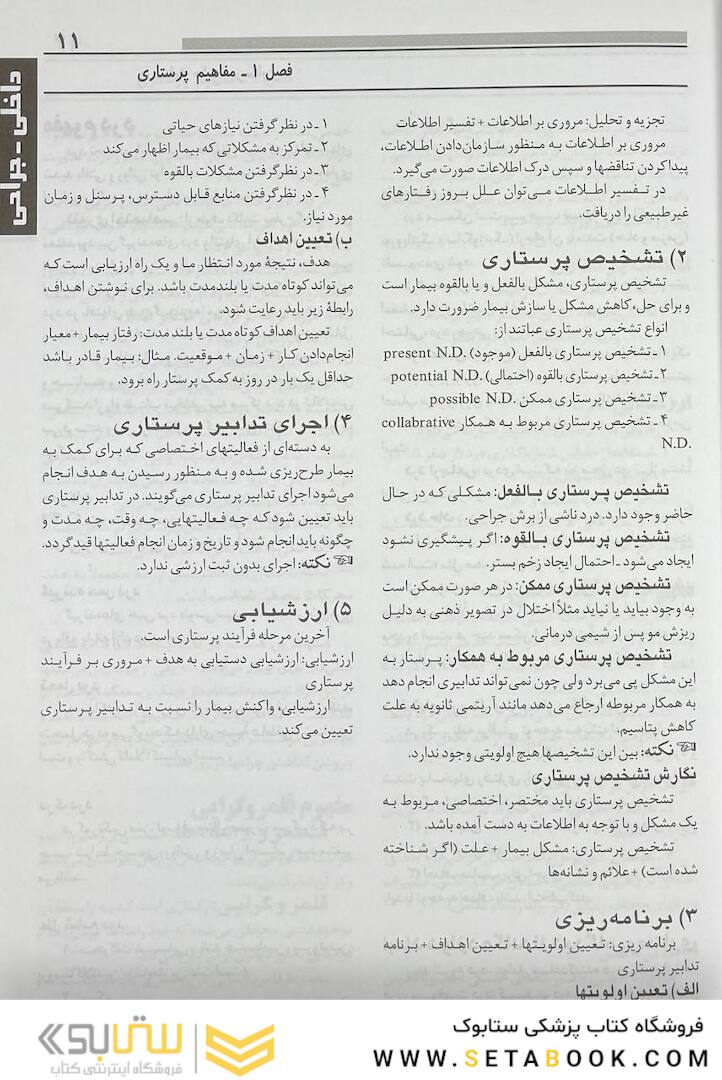 ۱۱
فصل ۱ ـ مفاهیم پرستاری
داخلی - جراحی
تجزیه و تحلیل: مروری بر اطلاعات + تفسیر اطلاعات
مروری بر اطلاعات به منظور سازمان‌دادن اطلاعات،
پیدا کردن تناقضها و سپس درک اطلاعات صورت می‌گیرد.
در تفسیر اطلاعات می‌توان علل بروز رفتارهای
غیرطبیعی را دریافت.
۲) تشخیص پرستاری
تشخیص پرستاری، مشکل بالفعل و یا بالقوه بیمار است
و برای حل، کاهش مشکل یا سازش بیمار ضرورت دارد.
انواع تشخیص پرستاری عباتند از:
۱ ـ تشخیص پرستاری بالفعل (موجود) present N.D.
۲ـ تشخیص پرستاری بالقوه (احتمالی) potential N.D.
۳ ـ تشخیص پرستاری ممکن possible N.D.
۴ ـ تشخیص پرستاری مربوط به همکار collabrative
N.D.
تشخیص پرستاری بالفعل: مشکلی که در حال
حاضر وجود دارد. درد ناشی از برش جراحی.
تشخیص پرستاری بالقوه: اگر پیشگیری نشود
ایجاد می‌شود ـ احتمال ایجاد زخم بستر.
تشخیص پرستاری ممکن: در هر صورت ممکن است
به وجود بیاید یا نیاید مثلاً اختلال در تصویر ذهنی به دلیل
ریزش مو پس از شیمی درمانی.
تشخیص پرستاری مربوط به همکار: پرستار به
این مشکل پی می‌برد ولی چون نمی‌تواند تدابیری انجام دهد
به همکار مربوطه ارجاع می‌دهد مانند آریتمی ثانویه به علت
کاهش پتاسیم.
نکته: بین این تشخیصها هیچ اولویتی وجود ندارد.
نگارش تشخیص پرستاری
تشخیص پرستاری باید مختصر، اختصاصی، مربوط به
یک مشکل و با توجه به اطلاعات به دست آمده باشد.
تشخیص پرستاری: مشکل بیمار + علت (اگر شناخته
شده است) + علائم و نشانه‌ها
۳) برنامه‌ریزی
برنامه ریزی: تعیین اولویتها + تعیین اهداف + برنامه
تدابیر پرستاری
الف) تعیین اولویتها
۱ ـ در نظر گرفتن نیازهای حیاتی
۲ ـ تمرکز به مشکلاتی که بیمار اظهار می‌کند
۳ ـ در نظرگرفتن مشکلات بالقوه
۴ ـ در نظرگرفتن منابع قابل دسترس، پرسنل و زمان
مورد نیاز.
ب) تعیین اهداف
هدف، نتیجهٔ مورد انتظار ما و یک راه ارزیابی است که
می‌تواند کوتاه مدت یا بلندمدت باشد. برای نوشتن اهداف،
رابطهٔ زیر باید رعایت شود.
تعیین اهداف کوتاه مدت یا بلند مدت: رفتار بیمار + معیار
انجام‌دادن کار + زمان + موقعیت. مثال: بیمار قادر باشد
حداقل یک بار در روز به کمک پرستار راه برود.
۴) اجرای تدابیر پرستاری
به دسته‌ای از فعالیتهای اختصاصی که برای کمک به
بیمار طرح‌ریزی شده و به منظور رسیدن به هدف انجام
می‌شود اجرای تدابیر پرستاری می‌گویند. در تدابیر پرستاری
باید تعیین شود که چه فعالیتهایی، چه وقت، چه مدت و
چگونه باید انجام شود و تاریخ و زمان انجام فعالیتها قید گردد.
نکته: اجرای بدون ثبت ارزشی ندارد.
۵) ارزشیابی
آخرین مرحله فرآیند پرستاری است.
ارزشیابی: ارزشیابی دستیابی به هدف + مروری بر فرآیند
پرستاری
ارزشیابی، واکنش بیمار را نسبت به تدابیر پرستاری
تعیین می‌کند.
فروشگاه کتاب پزشکی ستابوک
WWW.SETABOOK.COM
ستابوک
فروشگاه اینترنتی کتاب